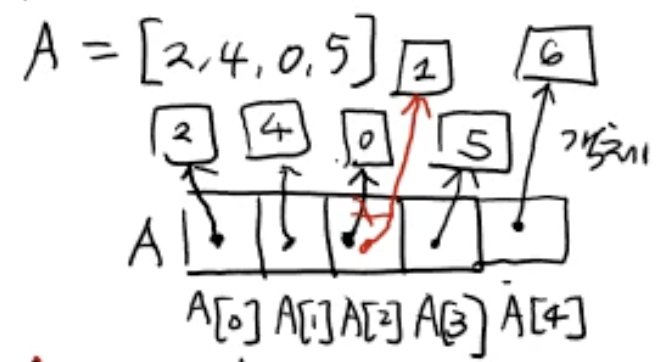 A = [2,4,0,5]
1 6
2 4 0 5
A
A[0] A[1] A[2] A[3] A[4]